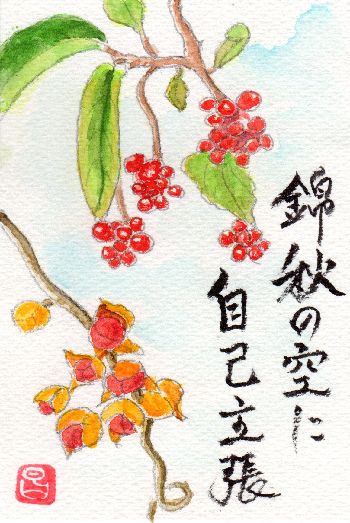 錦秋の空に
自己主張